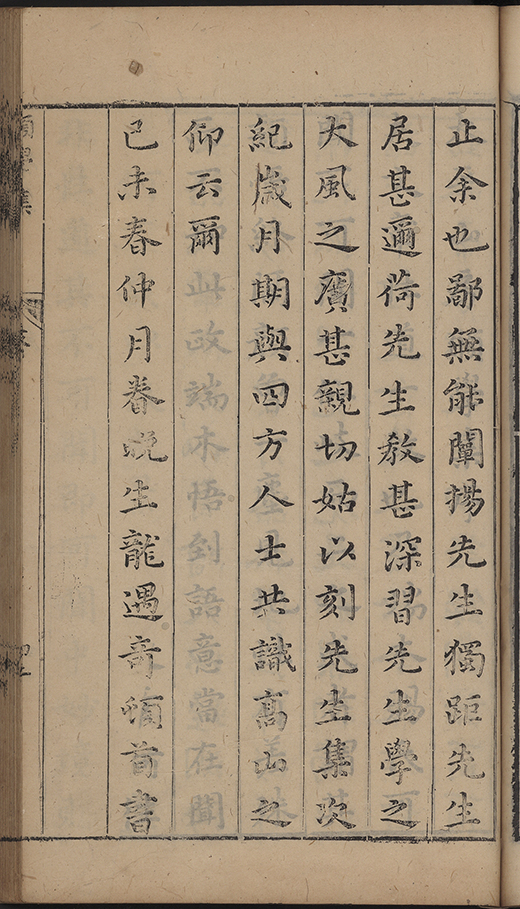 止余也鄙無能闡揚先生獨距先生
居甚邇荷先生教甚深習先生學之
大風之賡甚親切姑以刻先生集次
紀歲月期與四方人士共識高山之
仰云爾
己未春仲月眷晚生龍遇奇頓首書